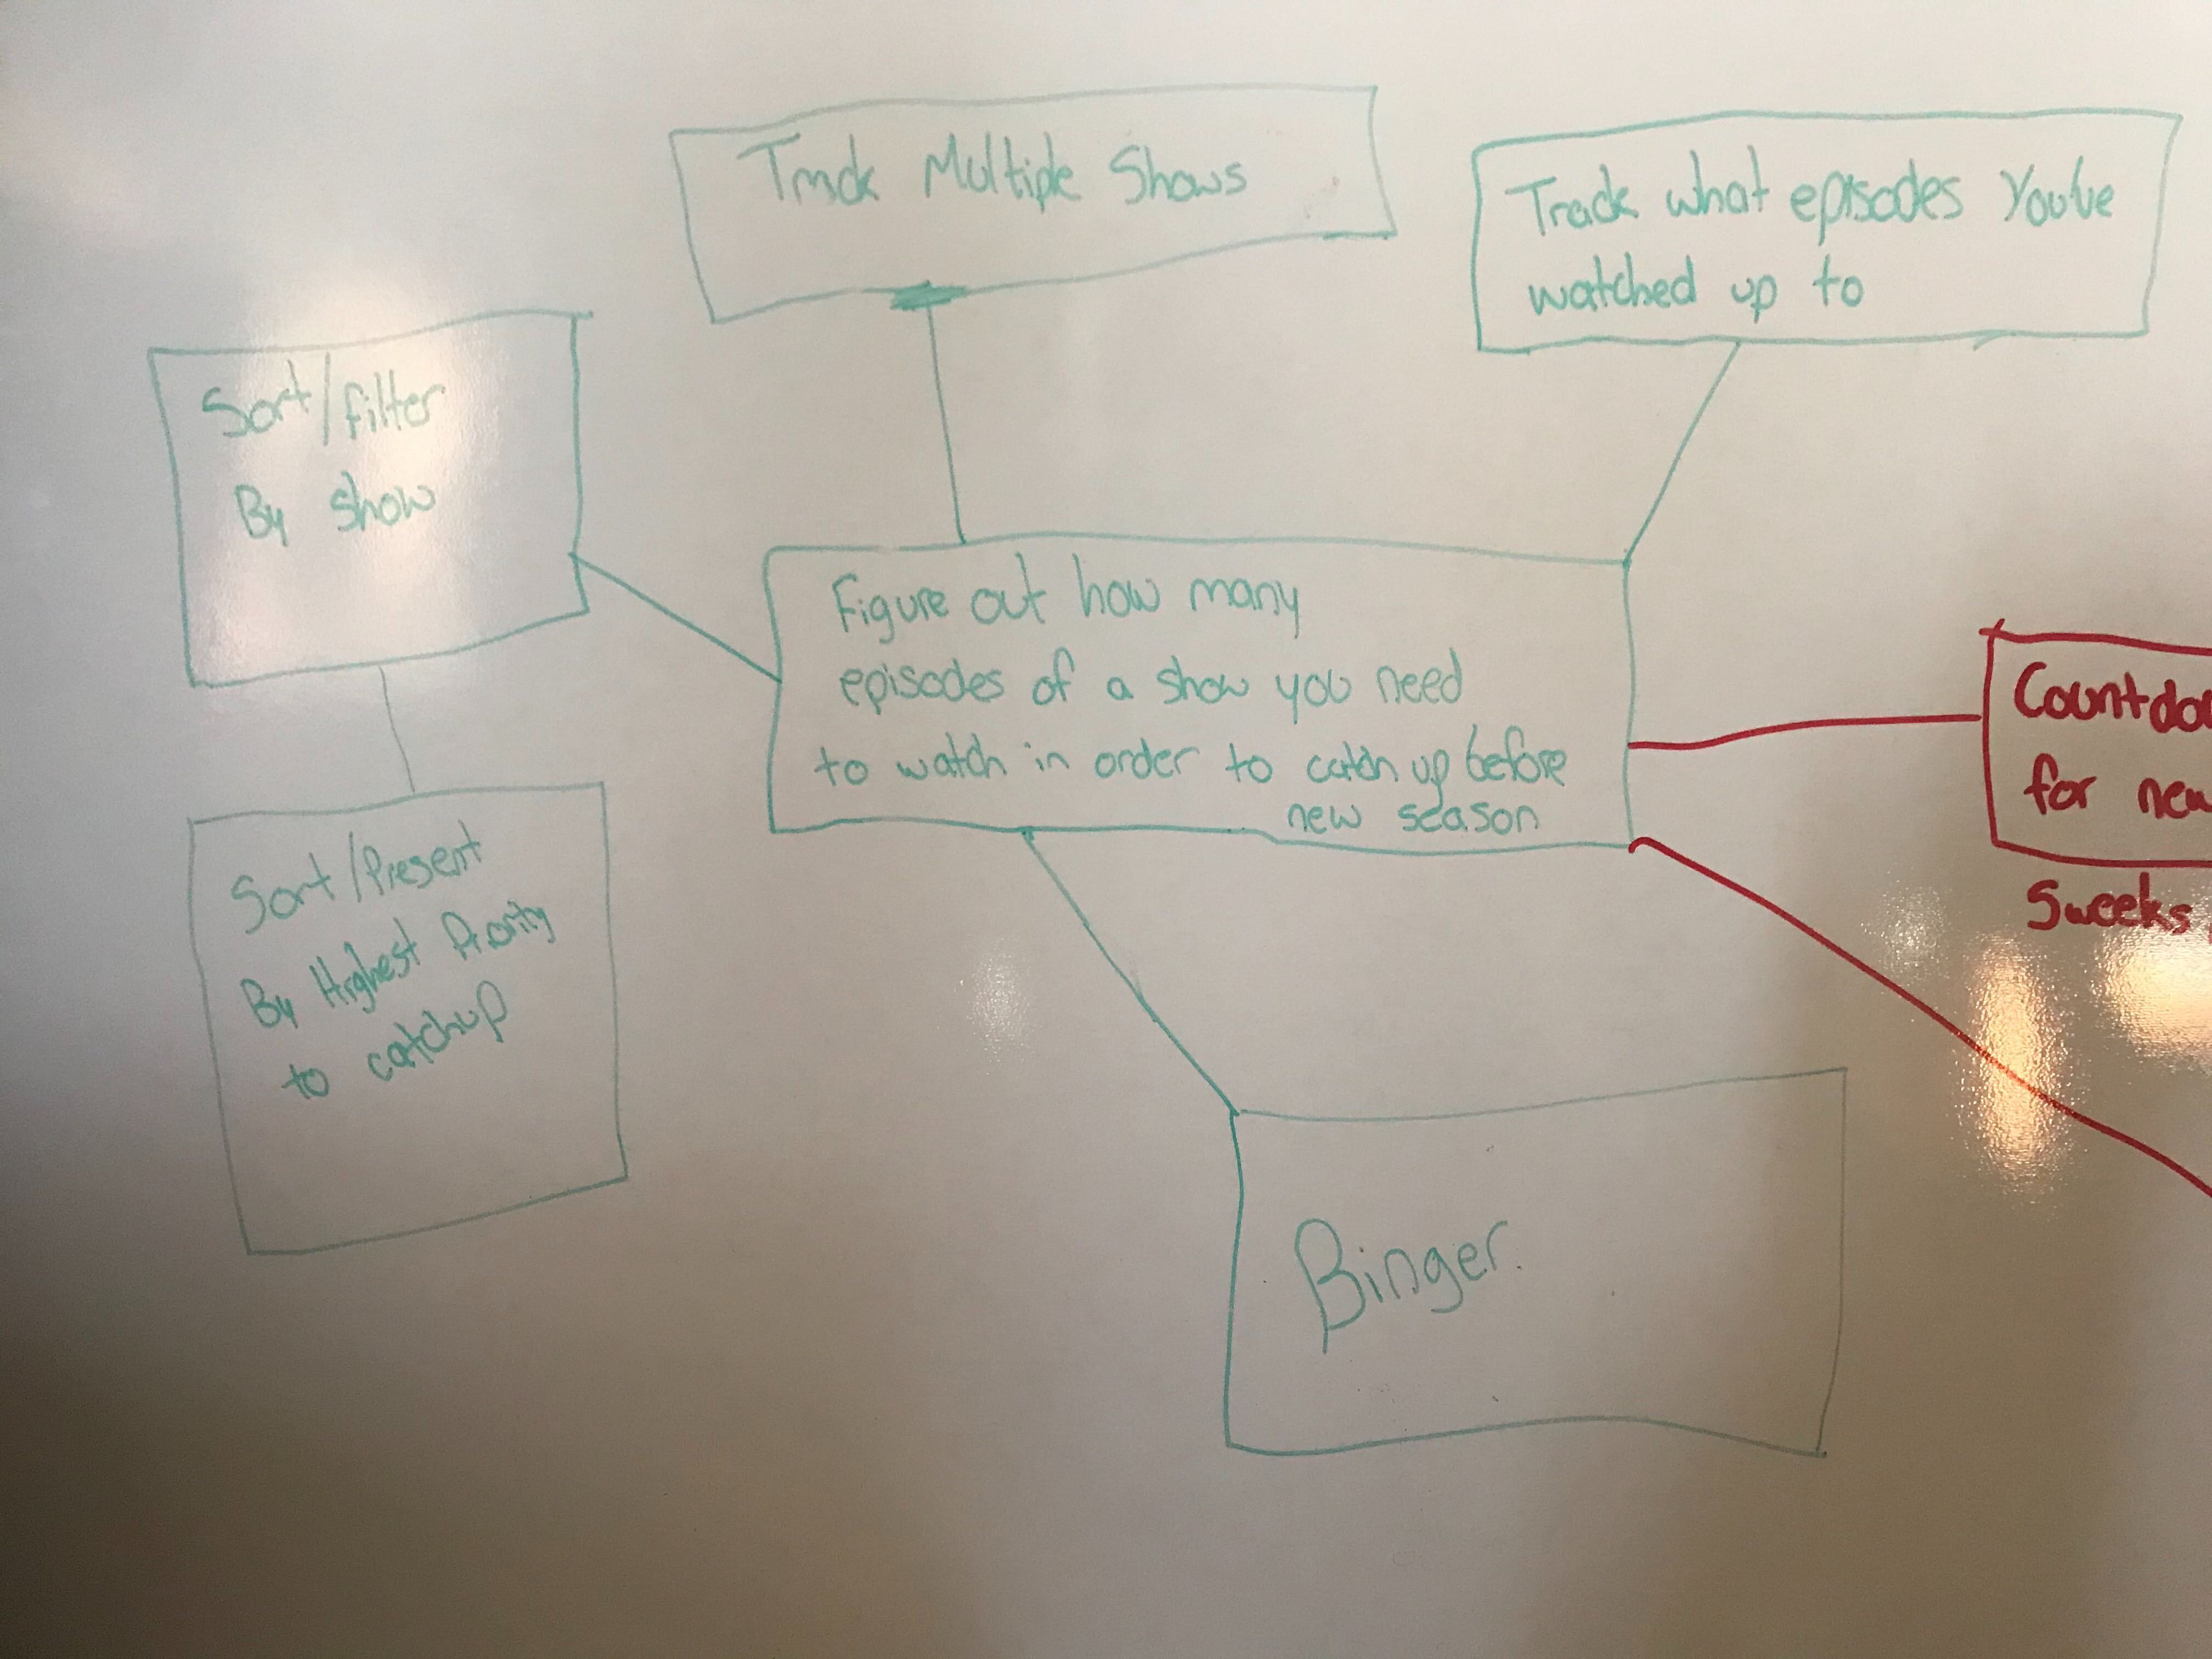 Track Multiple Shows
Track what episodes You've
watched up to
Sort/filter
By show
Figure out how many
episodes of a show you need
to watch in order to catch up before
new season
Countdo
for new
5weeks
Sort/Present
By Highest Priority
to catchup
Binger.